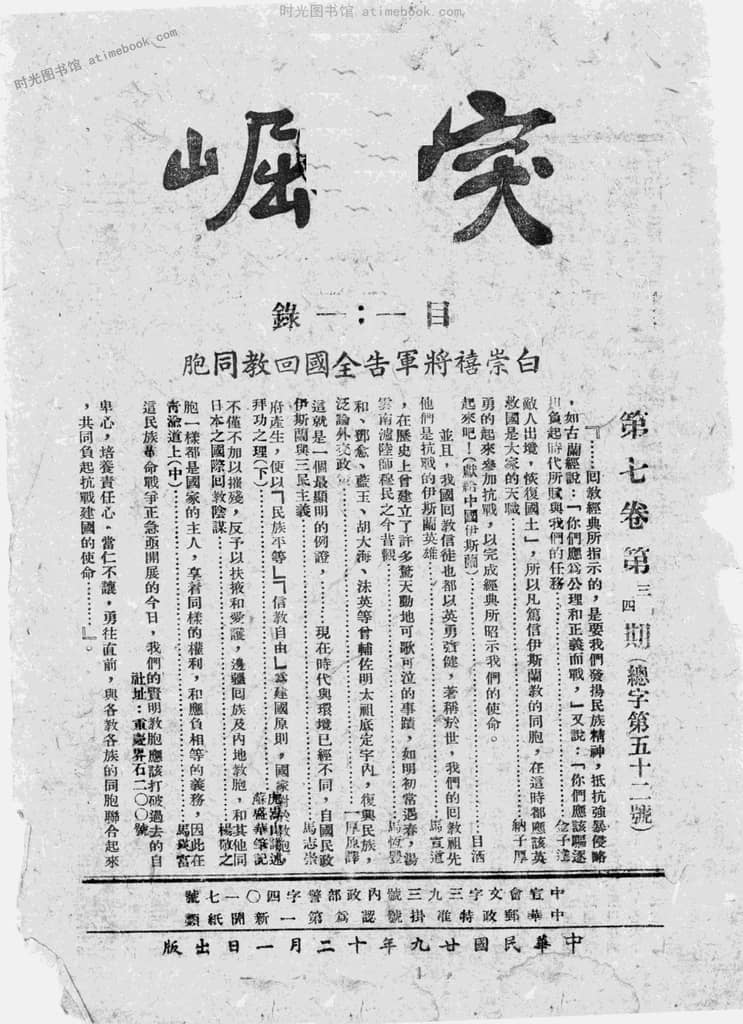 时光图书馆 atimebook.com
时光图书馆 atimebook.com
突崛
目一:一錄
白崇禧將軍告全國回教同胞
第七卷第三四期(總字第五十二號)
『……回教經典所指示的，是要我們發揚民族精神，抵抗強暴侵略
，如古蘭經說：「你們應爲公理和正義而戰，」又說：「你們應該驅逐
担負起時代所賦與我們的任務……金子達
敵人出境，恢復國土」，所以凡篤信伊斯蘭教的同胞，在這時都應該英
救國是大家的天職……納子厚
勇的起來參加抗戰，以完成經典所昭示我們的使命。
起來吧！(獻給中國伊斯蘭)……日酒
並且，我國回教信徒也都以英勇强健，著稱於世，我們的回教祖先
他們是抗戰的伊斯蘭英雄……馬宣道
，在歷史上曾建立了許多驚天動地可歌可泣的事蹟，如明初常遇春，湯
雲南瀘陸師穆民之今昔觀……馬恆豐
和、鄧愈、藍玉、胡大海、沐英等曾輔佐明太祖底定宇內，復興民族，
泛論外交政……厚原譯
這就是一個最顯明的例證，……現在時代與環境已經不同，自國民政
伊斯蘭與三民主義……馬志崇
府產生，便以『「民族平等」「信教自由」爲建國原則，國家對於教胞，
拜功之理(下)……虎嵩山講述 蘇盛華筆記
不僅不加以摧殘，反予以扶掖和愛護，邊疆回族及內地教胞，和其他同
日本之國際回教陰謀……楊敬之
胞一樣都是國家的主人，享着同樣的權利，和應負相等的義務，因此在
靑淦道上(中)……馬英富
這民族革命戰爭正急亟開展的今日，我們的賢明教胞應該打破過去的自
社址：重慶界石二〇〇號
卑心，培養責任心，當仁不讓，勇往直前，與各教各族的同胞聯合起來
，共同負起抗戰建國的使命……』。
中宣會文字三九三號內政部警字四〇一七號
中華郵政特准掛號認爲第一新聞紙類
中華民國廿九年十二月一日出版